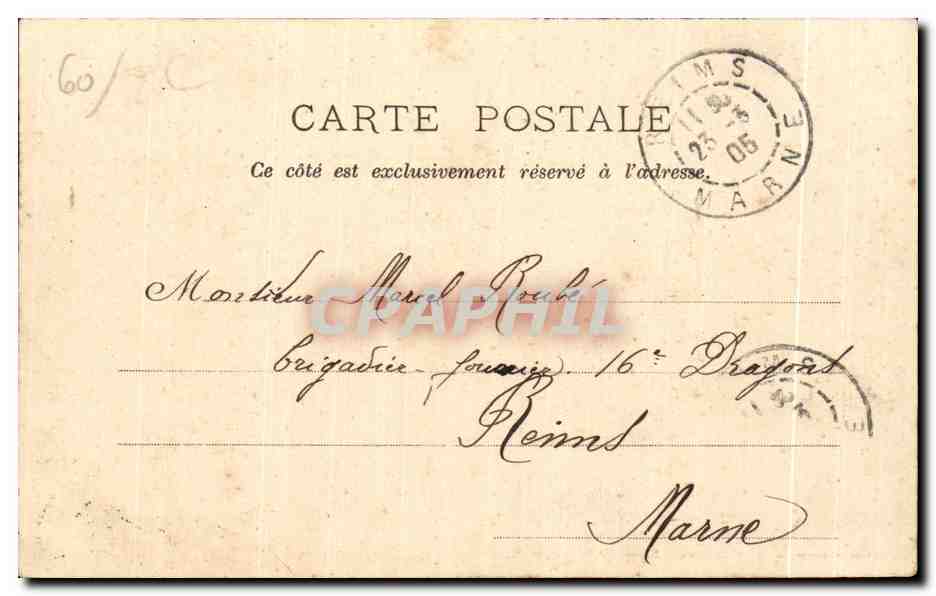 60/- C
REIMS
11 23 05
MARNE
CARTE POSTALE
Ce côté est exclusivement réservé à l'adresse.
Monsieur Marcel Roubé
CPAPHIL
brigadier-fourrier 16e Dragons
Reims
Marne